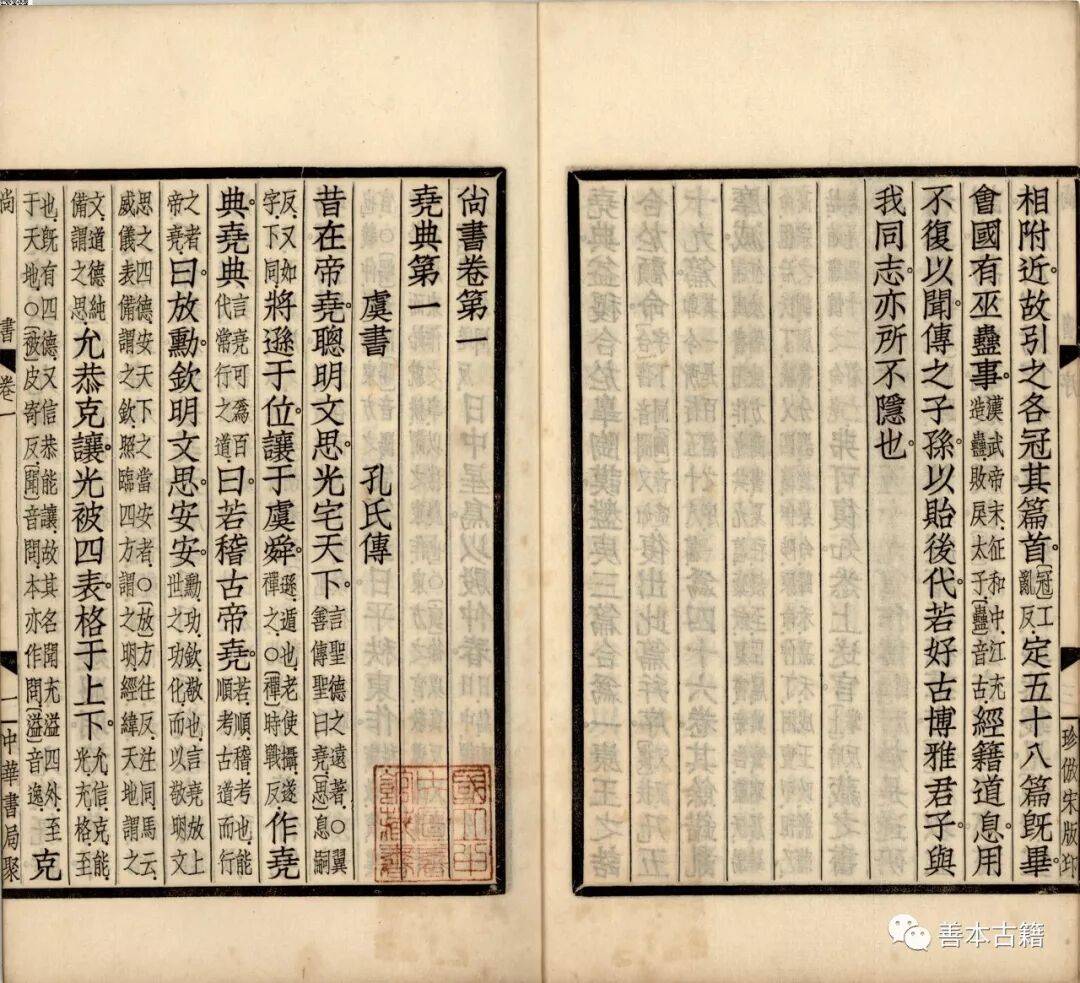 相附近故引之各冠其篇首冠工亂反定五十八篇既畢
會國有巫蠱事漢武帝末征和中江充造蠱敗戾太子蠱音古經籍道息用
不復以聞傳之子孫以貽後代若好古博雅君子與
我同志亦所不隱也
珍倣宋版印
尚書卷第一
堯典第一
虞書 孔氏傳
昔在帝堯聰明文思光宅天下言聖德之遠著○翼善傳聖曰堯思息嗣
反又如字下同將遜于位讓于虞舜遜遁也老使攝遂禪之○禪時戰反作堯
典堯典言堯可爲百代常行之道曰若稽古帝堯若順稽考也能順考古道而行
之者帝堯曰放勳欽明文思安安勳功欽敬也言堯放上世之功化而以敬明文
思之四德安天下之當安者○放方往反注同馬云威儀表備謂之欽照臨四方謂之明經緯天地謂之
文道德純備謂之思允恭克讓光被四表格于上下允信克能光充格至
也既有四德又信恭能讓故其名聞充溢四外至于天地○被皮寄反聞音問本亦作問溢音逸克
尚書 卷一 一 中華書局聚
善本古籍